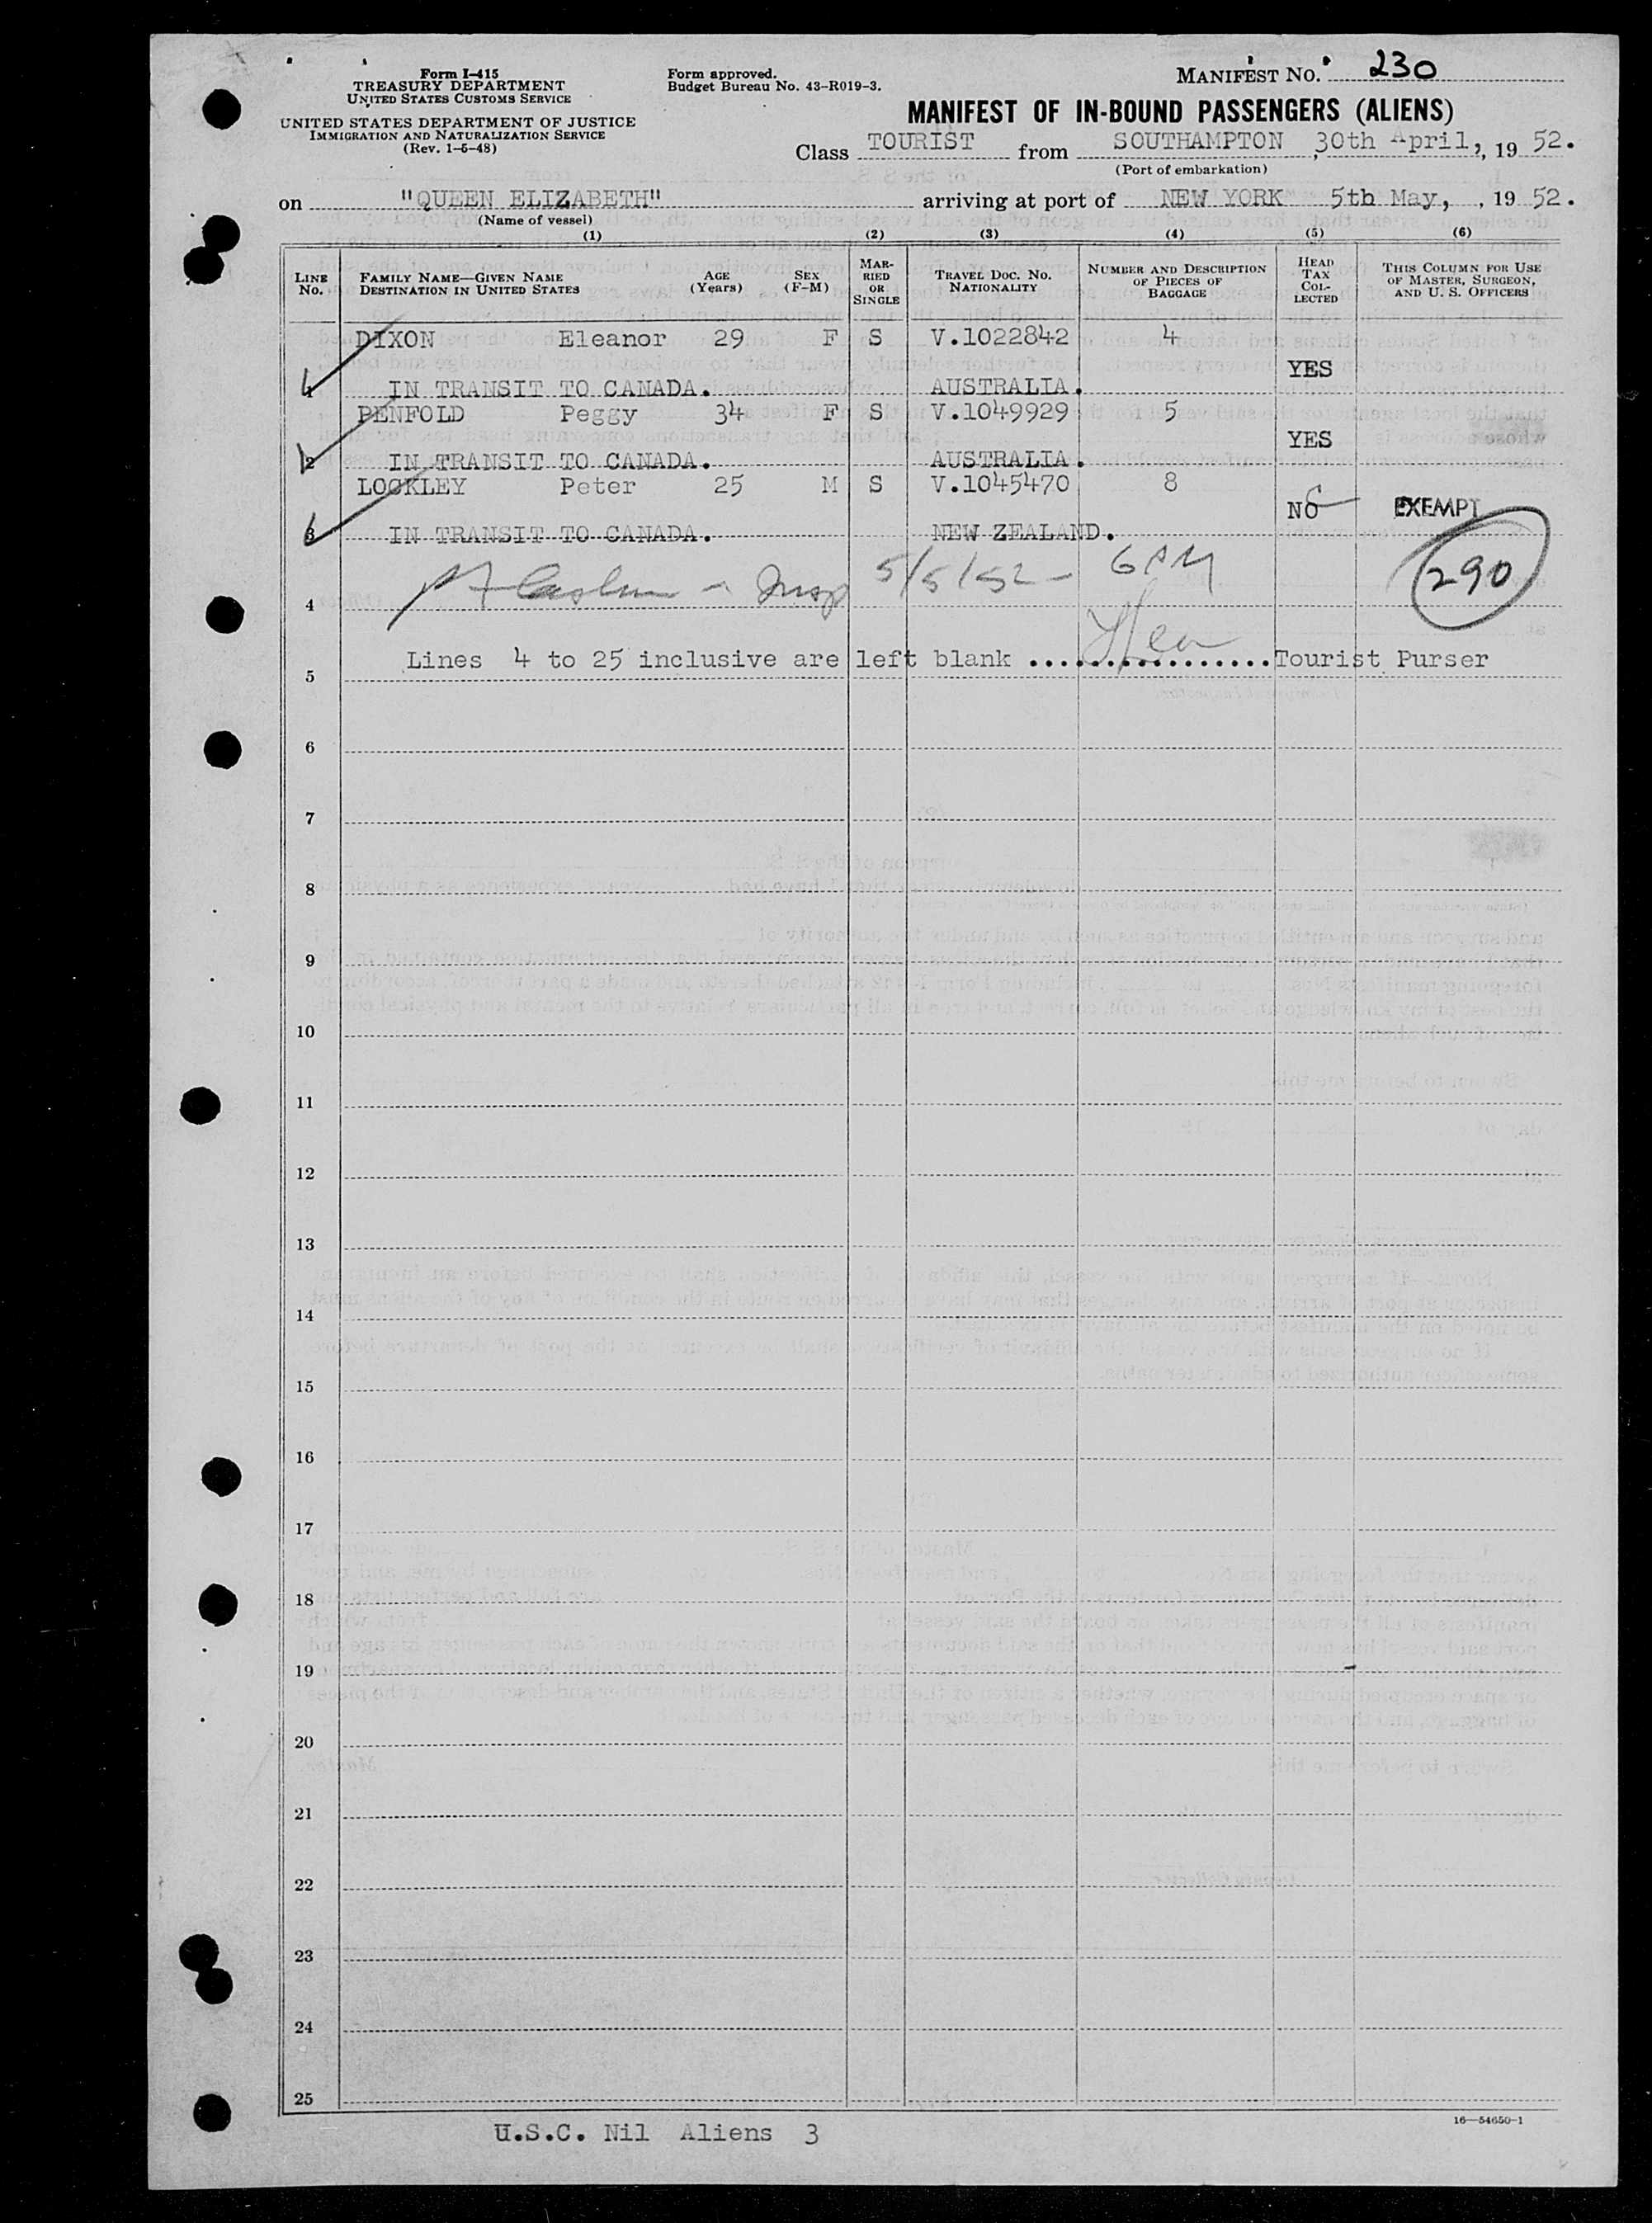 Form I-415
TREASURY DEPARTMENT
UNITED STATES CUSTOMS SERVICE
UNITED STATES DEPARTMENT OF JUSTICE
IMMIGRATION AND NATURALIZATION SERVICE
(Rev. 1-5-48)
Form approved.
Budget Bureau No. 43-R019-3.
MANIFEST NO. 230
MANIFEST OF IN-BOUND PASSENGERS (ALIENS)
Class TOURIST from SOUTHAMPTON, 30th April,, 19 52.
(Port of embarkation)
on "QUEEN ELIZABETH" arriving at port of NEW YORK 5th May, , 19 52.
(Name of vessel)
(1) (2) (3) (4) (5) (6)
LINE No. FAMILY NAME—GIVEN NAME DESTINATION IN UNITED STATES AGE (Years) SEX (F-M) MARRIED OR SINGLE TRAVEL DOC. NO. NATIONALITY NUMBER AND DESCRIPTION OF PIECES OF BAGGAGE HEAD TAX COLLECTED THIS COLUMN FOR USE OF MASTER, SURGEON, AND U. S. OFFICERS
DIXON Eleanor 29 F S V.1022842 4
YES
1 IN TRANSIT TO CANADA. AUSTRALIA.
PENFOLD Peggy 34 F S V.1049929 5
YES
2 IN TRANSIT TO CANADA. AUSTRALIA.
LOCKLEY Peter 25 M S V.1045470 8
NO EXEMPT
3 IN TRANSIT TO CANADA. NEW ZEALAND.
Insp 5/5/52 - 6PM 290
4
Lines 4 to 25 inclusive are left blank .................Tourist Purser
5
6
7
8
9
10
11
12
13
14
15
16
17
18
19
20
21
22
23
24
25
16—54650-1
U.S.C. Nil Aliens 3